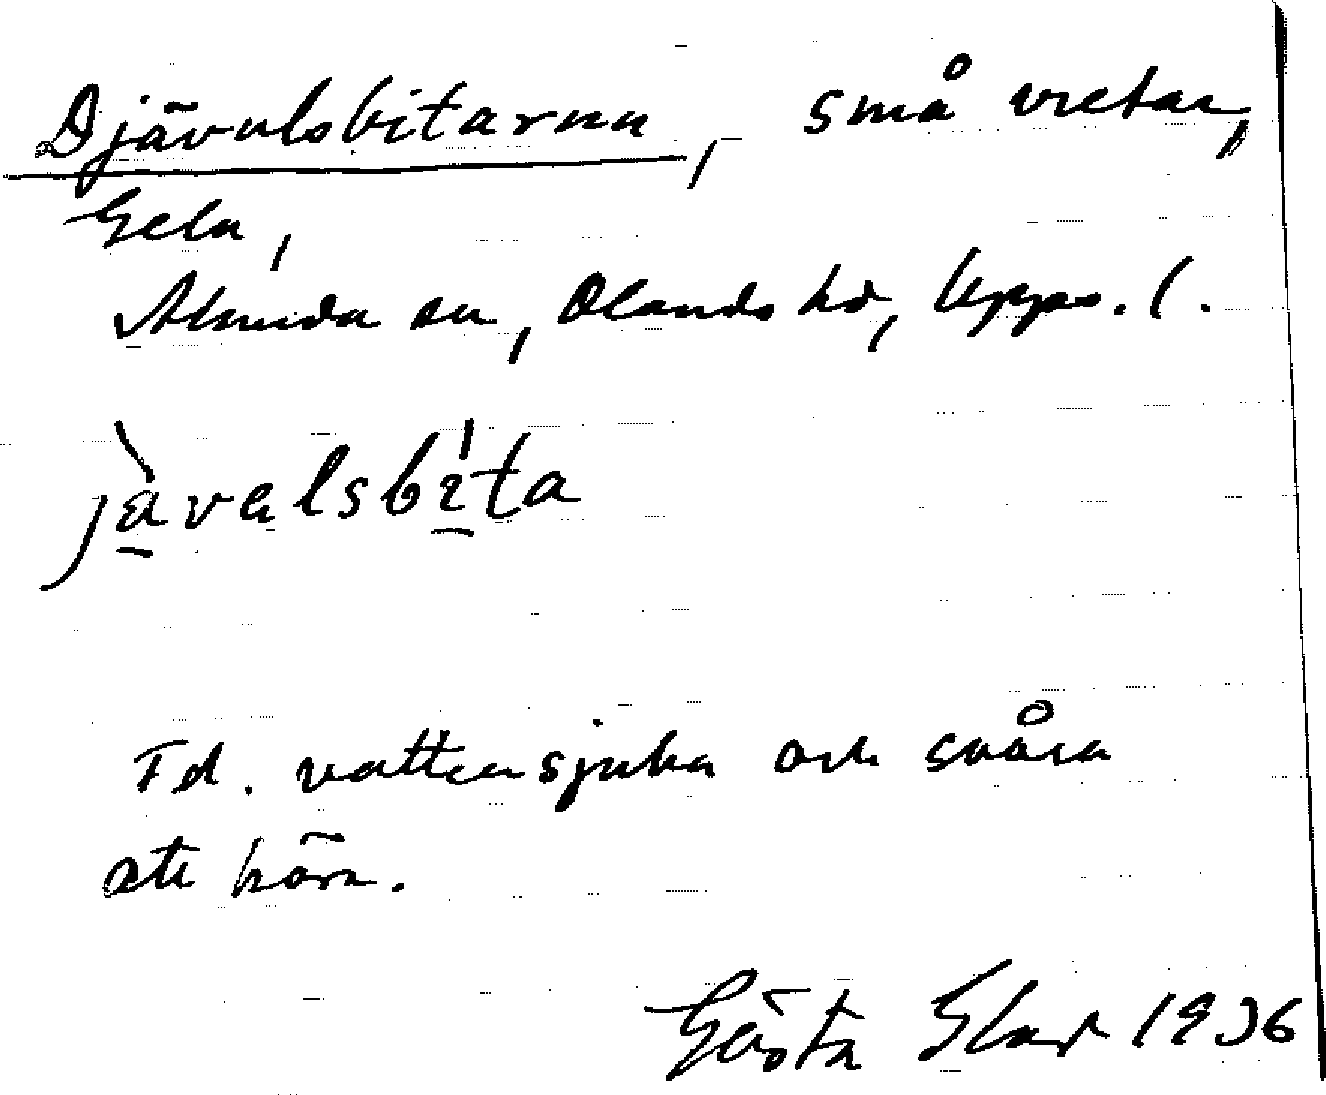 Djävulsbitarna, små vretar,
Gela,
Almunda sn, Olands hd, Upps. l.
jàvəlsbíta
Fd. vattensjuka och svåra
att köra.
Gösta 1936